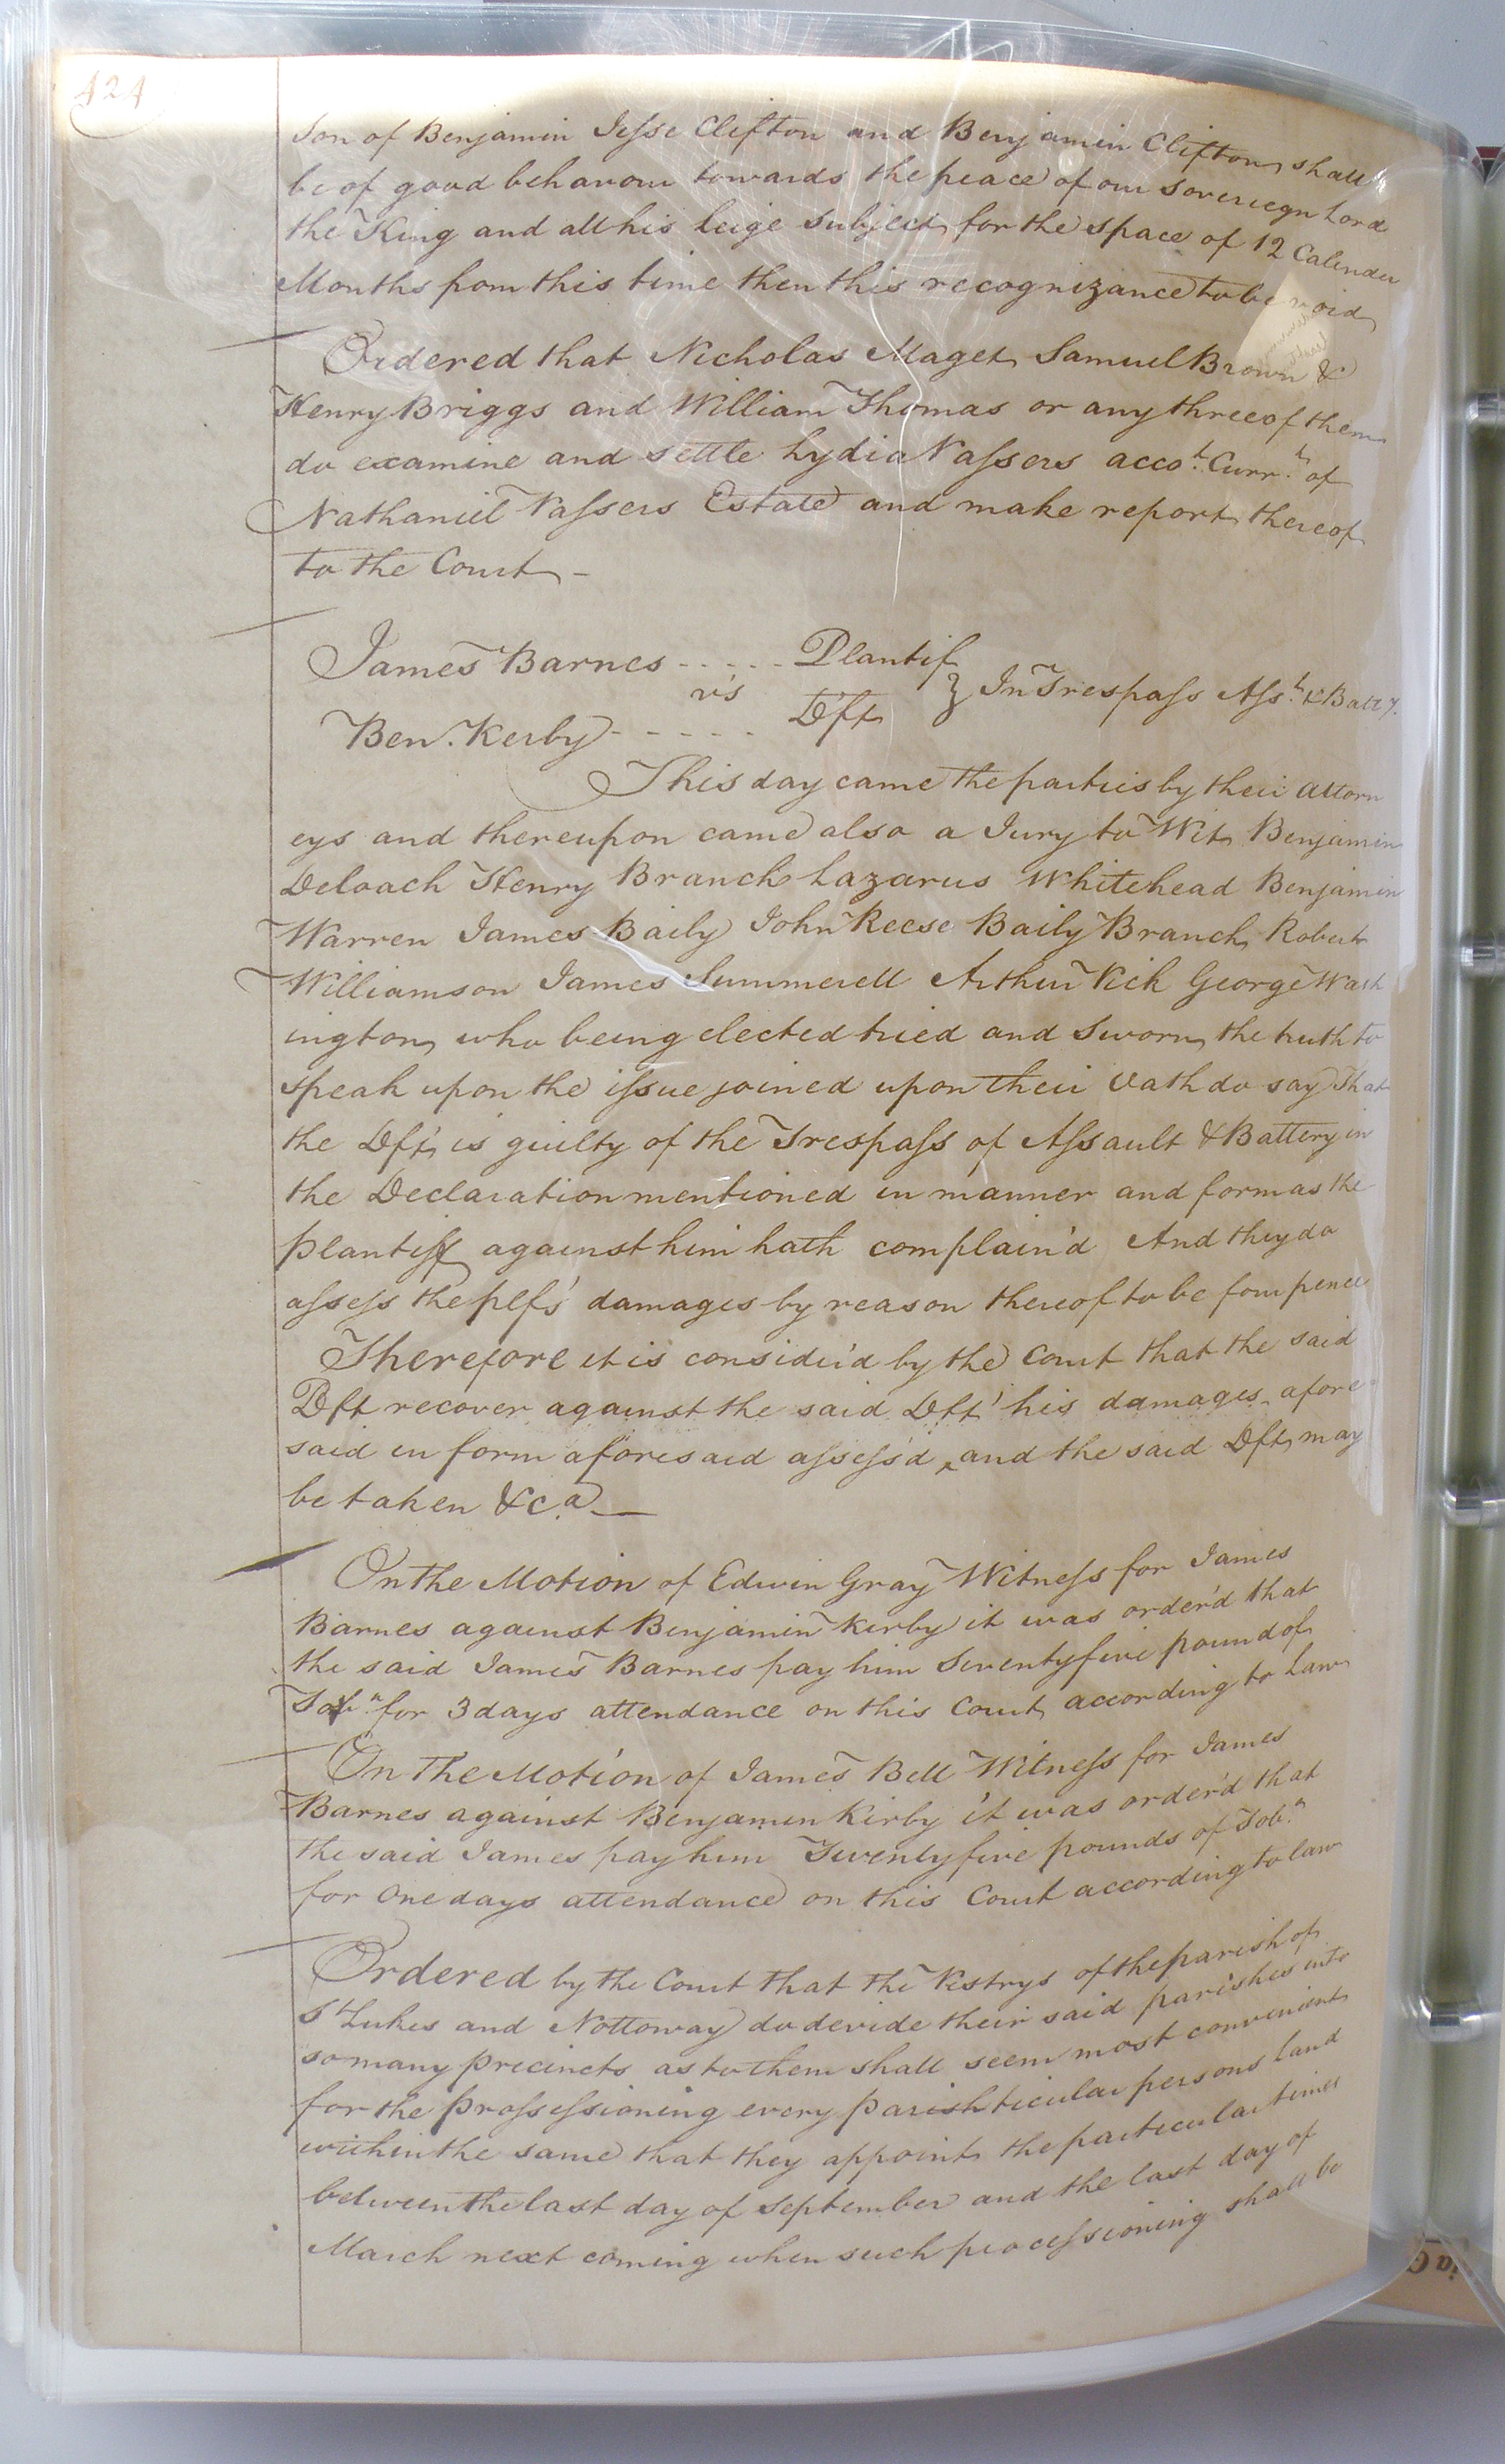 424
Son of Benjamin Jesse Clifton and Benjamin Clifton shall
be of good behavour towards the peace of our Sovereign Lord
the King and all his leige Subjects for the space of 12 Calender
Months from this time then this recognizance to be void
Ordered that Nicholas Maget Samuel Brown &
Henry Briggs and William Thomas or any three of them
do examine and settle Lydia Vassers acco.t Curr.t of
Nathaniel Vassers Estate and make report thereof
to the Court -
James Barnes ----- Plantif
vs } In Trespass Ass.t & Batt.y
Ben. Kerby ----- Dft
This day came the parties by their attorn
eys and thereupon came also a Jury to Wit Benjamin
Deloach Henry Branch Lazarus Whitehead Benjamin
Warren James Baily John Reese Baily Branch Robert
Williamson James Summerell Arthur Vick George Wash
ington who being elected tried and Sworn the truth to
speak upon the issue joined upon their oath do say That
the Dft is guilty of the Trespass of Assault & Battery in
the Declaration mentioned in manner and form as the
plantiff against him hath complain'd And they do
assess the plfs' damages by reason thereof to be four pence
Therefore it is consider'd by the Court that the said
Dft recover against the said Dft' his damages afore
said in form aforesaid assess'd ‸ and the said Dft may
be taken &c.a —
On the Motion of Edwin Gray Witness for James
Barnes against Benjamin Kirby it was order'd that
the said James Barnes pay him Seventy five pound of
Tob.o for 3 days attendance on this Court according to Law
On the Motion of James Bell Witness for James
Barnes against Benjamin Kirby it was order'd that
the said James pay him Twenty five pounds of Tob.o
for One days attendance on this Court according to law
Ordered by the Court that the Vestrys of the parish of
St Lukes and Nottoway do devide their said parishes into
so many precincts as to them shall seem most convenient
for the prossessioning every parishticular persons Land
within the same that they appoint the particular times
between the last day of September and the last day of
March next coming when such processioning shall be